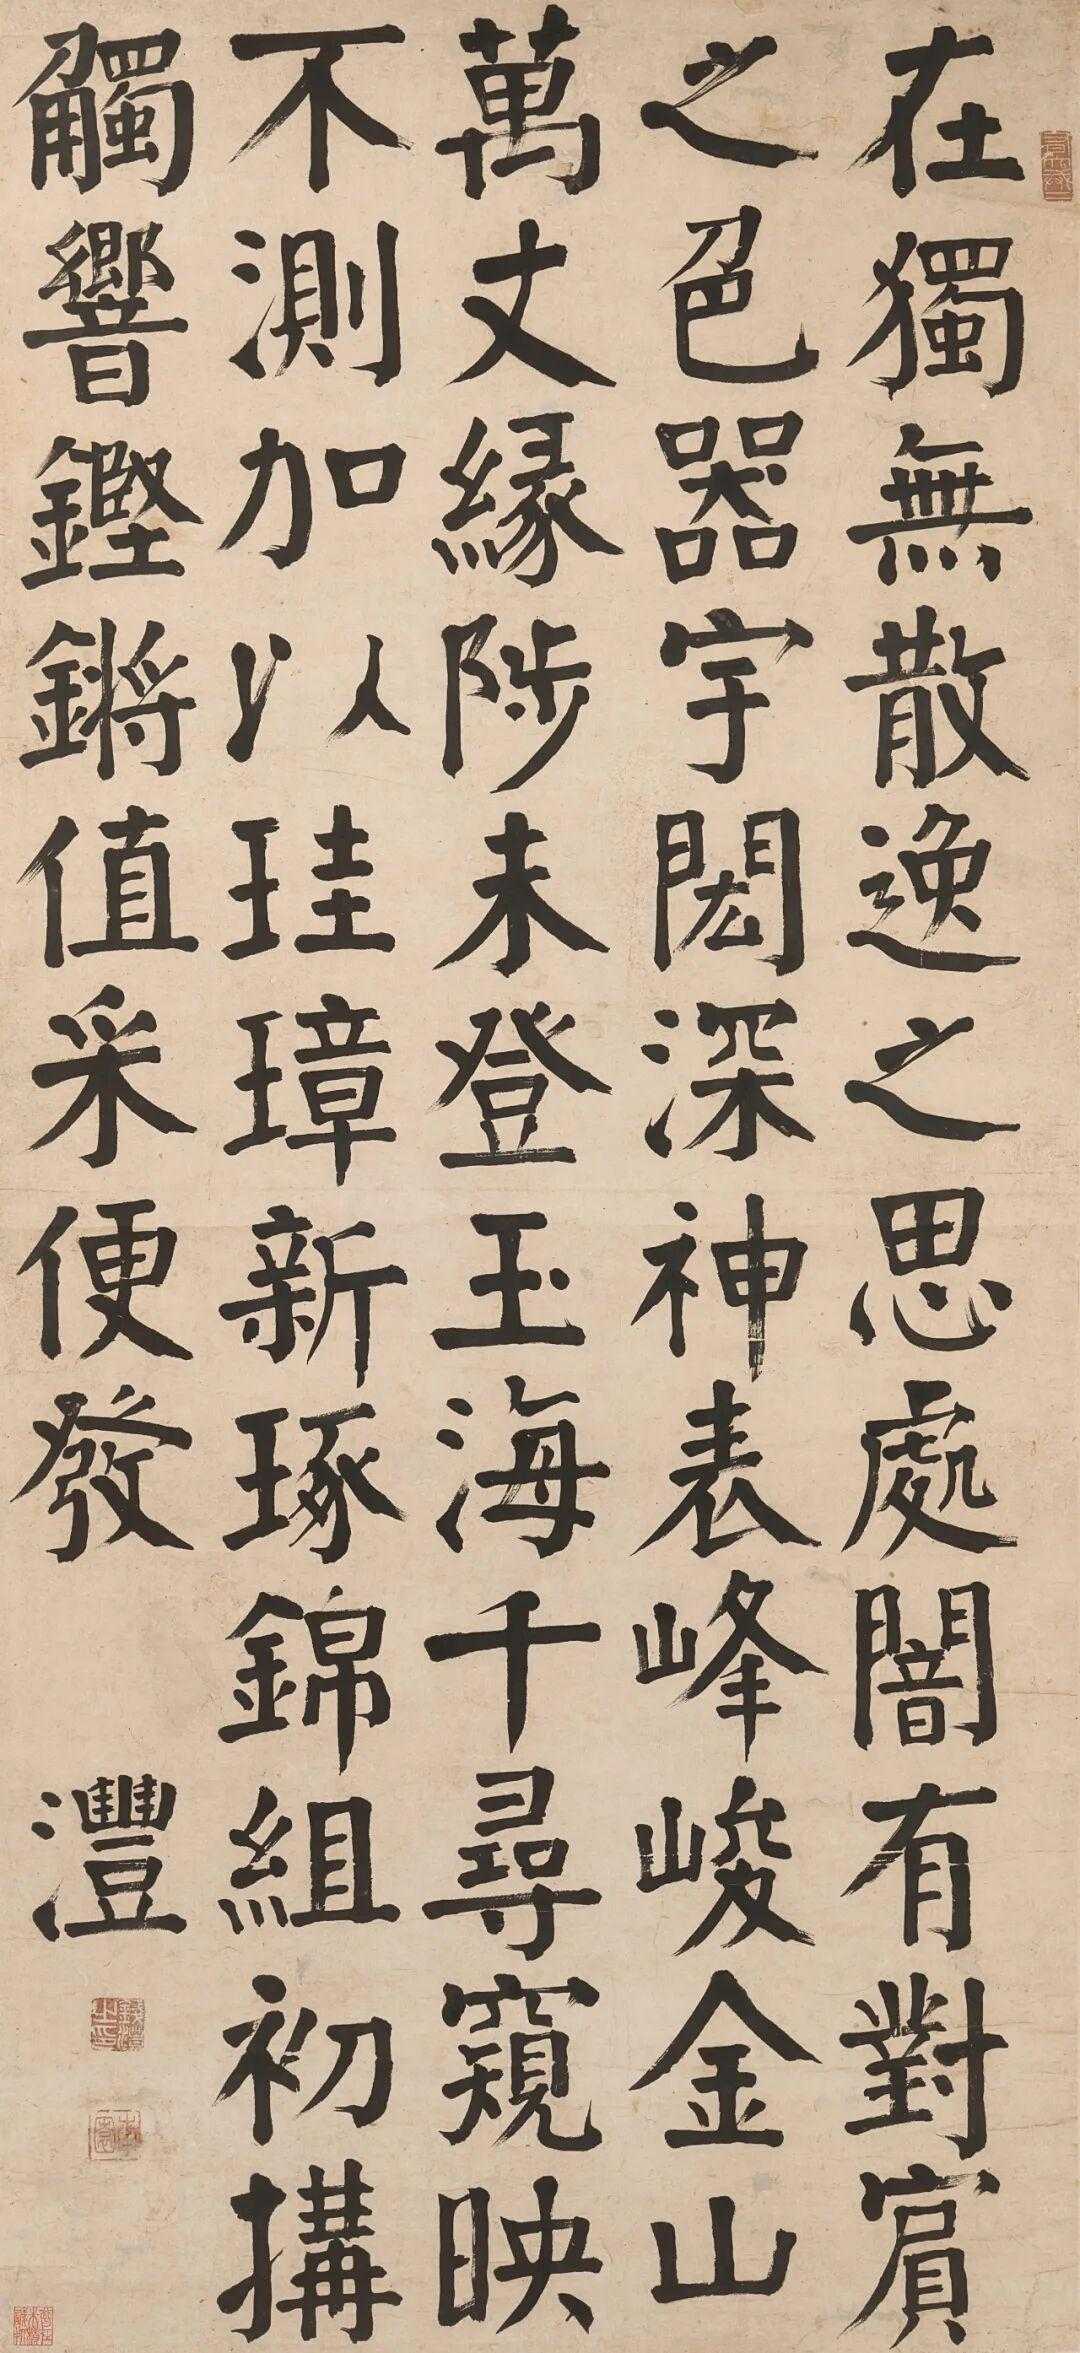 在獨無散逸之思處闇有對賔
之色器宇閎深神表峰峻金山
萬丈緣陟未登玉海千尋窺映
不測加以珪璋新琢錦組初搆
觸響鏗鏘值采便發
灃